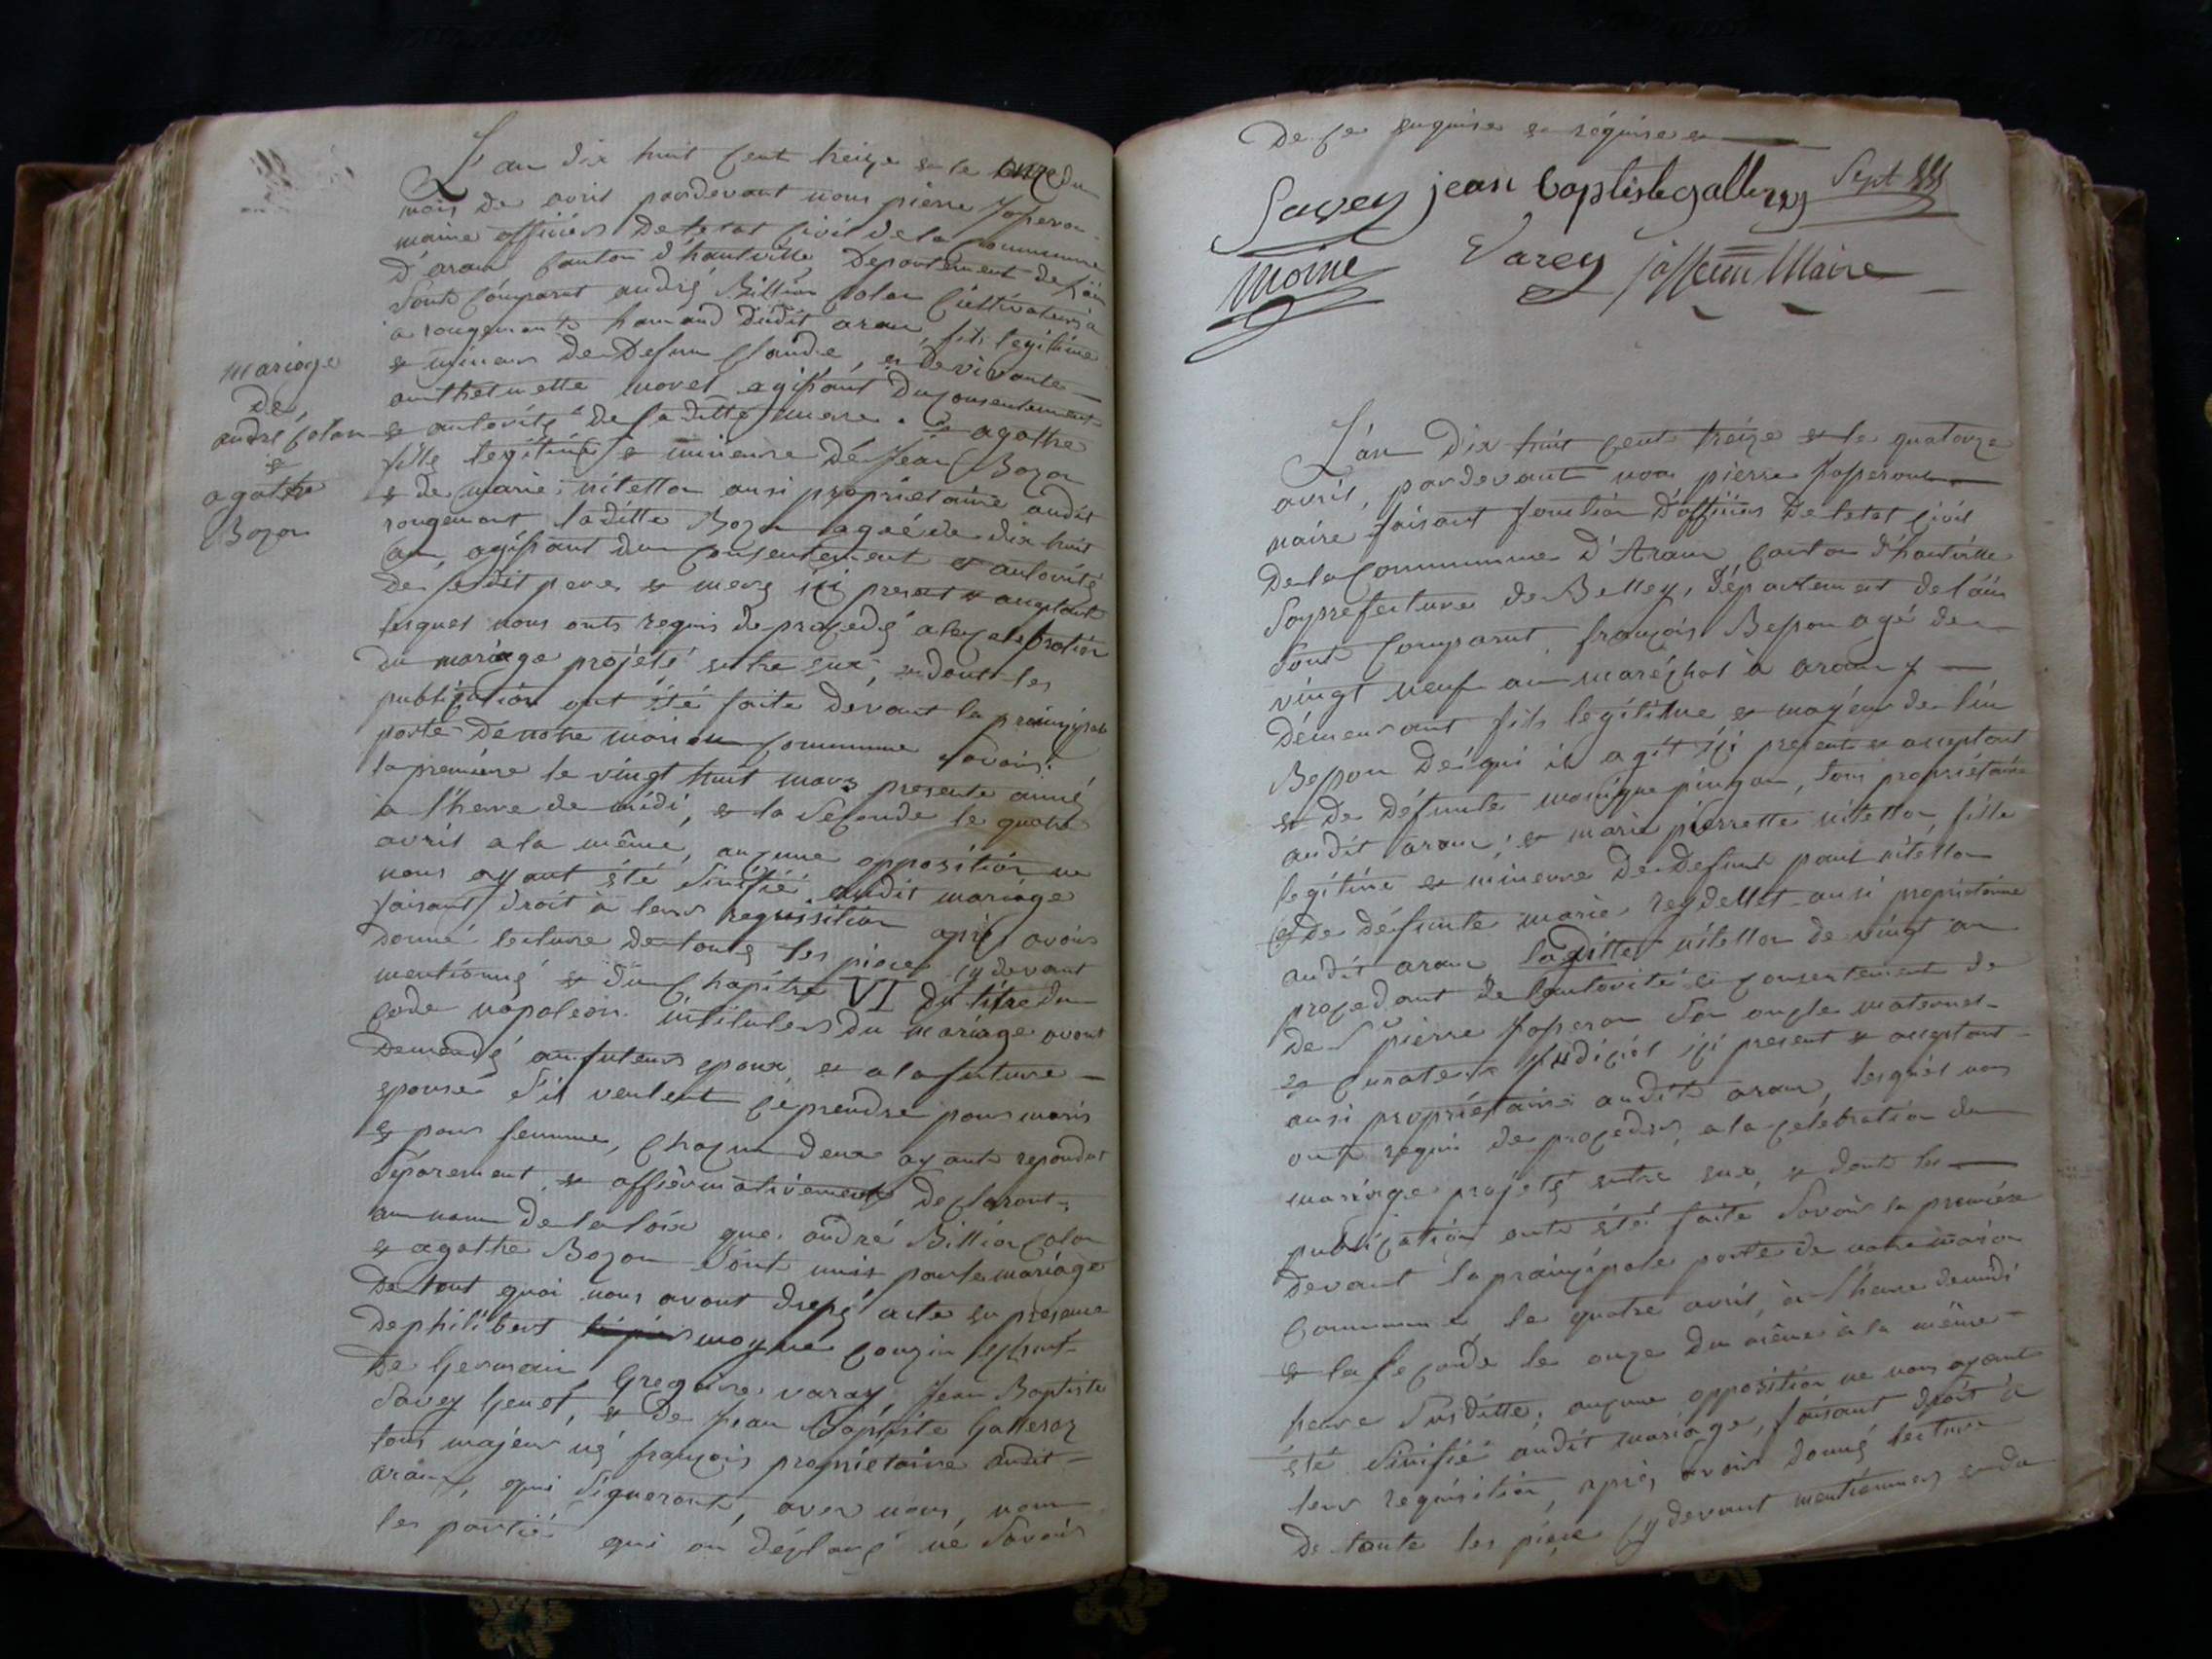 L'an dix huit cent treize et le onze du
mois de avril pardevant nous pierre Josseron
maire officiers de letat civil de la commune
d'aranc canton d'hauteville Departement de l'ain
sont comparut andré Billion colon cultivateurs a
a rougemonts hamaud dudit aranc, fils legitime
et mineur de Defun claude, et de vivante
anthelmette morel agissant du consentement
et autorité de la ditte mere. et agathe
fille legitime et mineure de Jean Bozon
et de marie, nitellon ausi proprietaire audit
rougemont laditte Bozon agée de dix huit
an, agissant du consentement et autorité
de sesdit pere et mere ici present et aceptant
lesquel nous onts requis de procedé a la celebration
du mariage projeté entre eux, et dont les
publication ont été faite devant la principal
porte de notre maison commune savoir:
la premiere le vingt huit mars presente anné
a l'heure de midi, et la seconde le quatre
avril a la même, aucune opposition ne
nous ayant été sinifié audit mariage
faisant droit à leurs requisition après avoir
donné lecture de toute les piece cy devant
mentionné et du chapitre VI du titre du
code napoleon intitulers du mariage avont
demendé au futeurs epoux et a la future
epouse s'il veulent ce prendre pour maris
et pour femme, chaqun deux ayants repondut
séparement et affiermativement declaront
au nom de la loix que andré Billion colon
et agathe Bozon sont unis par le mariage
de tout quoi nous avont dressé acte en presence
de philibert moyne couzin
de Germain Gregoire varay, Jean Baptiste
Savey Genet, et de Jean Baptiste Gallesoz
tous majeur né françois proprietaire audit
aranc, qui signeront, avec nous, non
les partié qui on déclaré ne savoir
mariage
de,
andré colon
et
agathe
Bozon
De ce enquise et réquise
Savey jean baptiste galley Sept
Moine Varey Josseron Maire
L'an Dix huit cent treize et le quatorze
avril, pardevant nou pierre Josseron
maire faisant fonction d'officier de letat civil
de la commune d'Aranc, canton d'hauteville
Soupréfecture de Belley, département de l'ain
sont comparut françois Besson agé de
vingt neuf an maréchal à aranc y
démeurant fils legitime et mayeur de
Besson de qui il agit ici present et aceptant
et de défunte monique pinçon, tous proprietaire
audit aranc; et marie pierrette nitellon, fille
legitime et mineure de Defunt paul nitellon
et de défunte marie reydellet ausi proprietaire
audit aranc laditte nitellon de vingt an
procedant de l'autorité et consentement de
de Sr pierre Josseron son oncle maternel
et curateur judiciel ici present et aceptant
ausi propriétaire audit aranc, lesquel nous
ont requi de proceder a la celebration du
mariage projeté entre eux, et dont les
publication onts été faite savoir la premiere
devant la principale porte de notre maison
commune le quatre avril, à l'heure de midi
et la seconde le onze du même à la même
heure susditte, aucune opposition ne nous ayant
été sinifié audit mariage, faisant droit à
leurs requisition, après avoir donné lecture
de toute les piece cy devant mentionnes et du